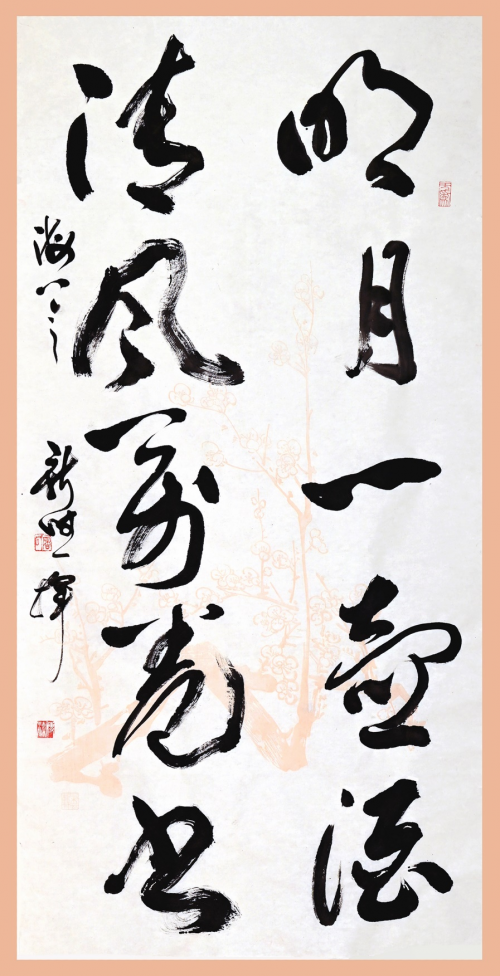 明月一壶酒
清风万卷书